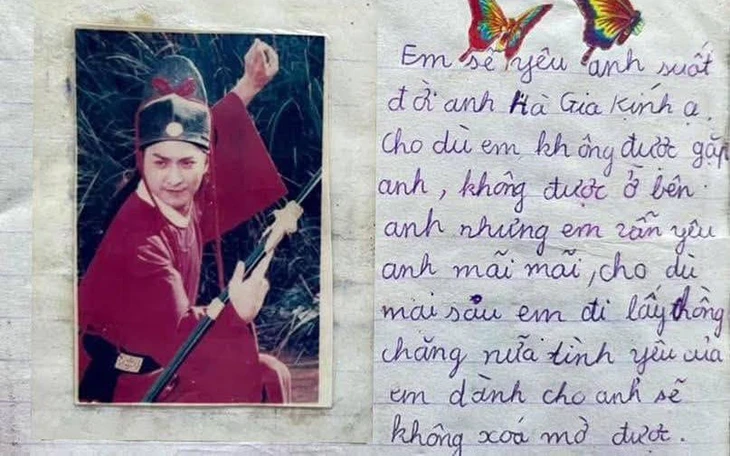 Em sẽ yêu anh suốt
đời anh Hà Gia Kính ạ.
Cho dù em không được gặp
anh, không được ở bên
anh nhưng em vẫn yêu
anh mãi mãi, cho dù
mai sau em đi lấy chồng
chăng nữa tình yêu của
em dành cho anh sẽ
không xoá mờ được.